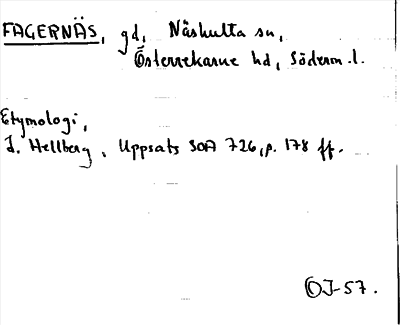 FAGERNÄS, gd, Näshulta sn,
Österrekarne hd, Söderm. l.
Etymologi,
L. Hellberg, Uppsats SOA 726, p. 178 ff.
OJ-57.